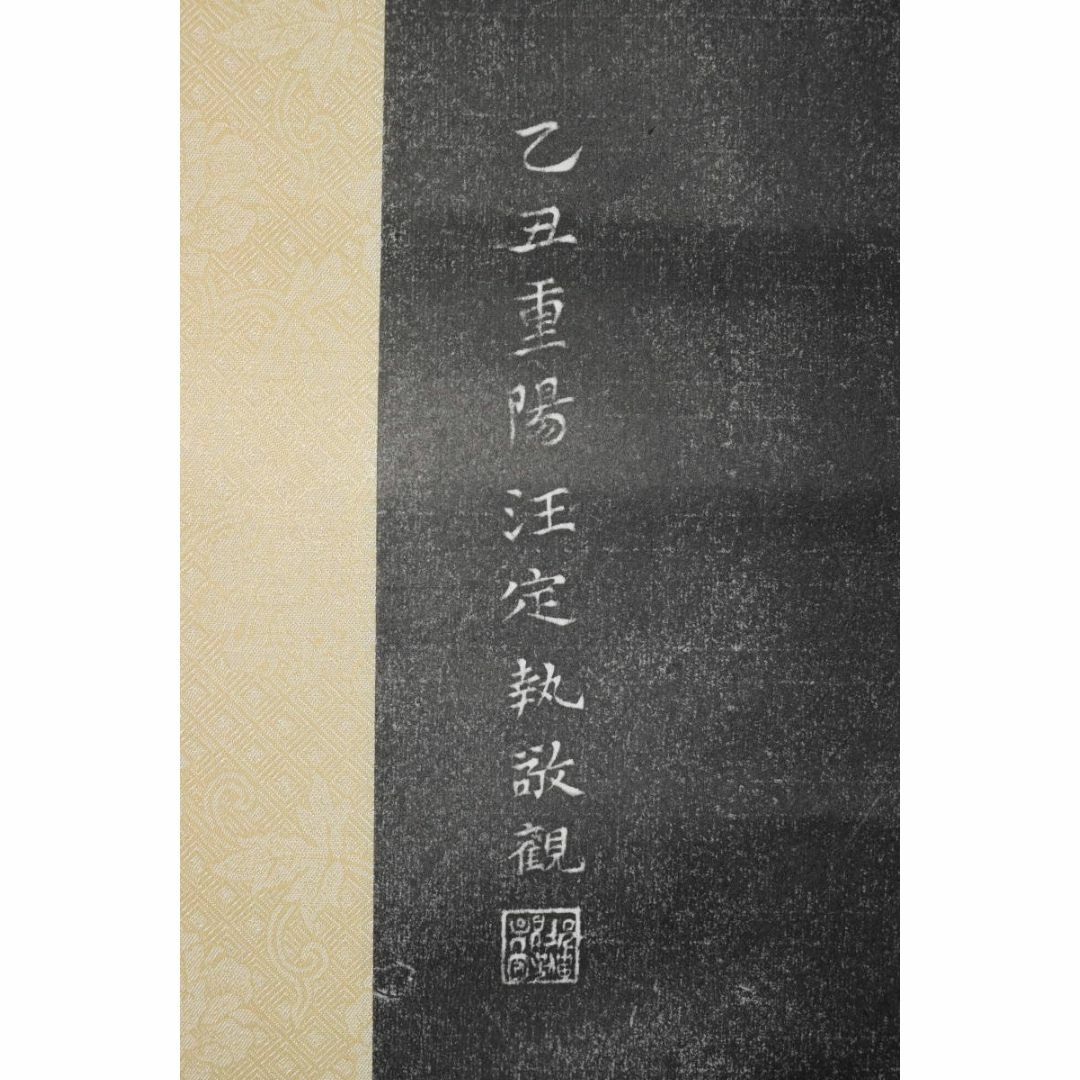 乙丑重陽汪定執敬觀